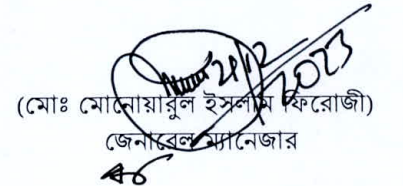 21/12/2023
(মোঃ মোনোয়ারুল ইসলাম ফিরোজী)
জেনারেল ম্যানেজার